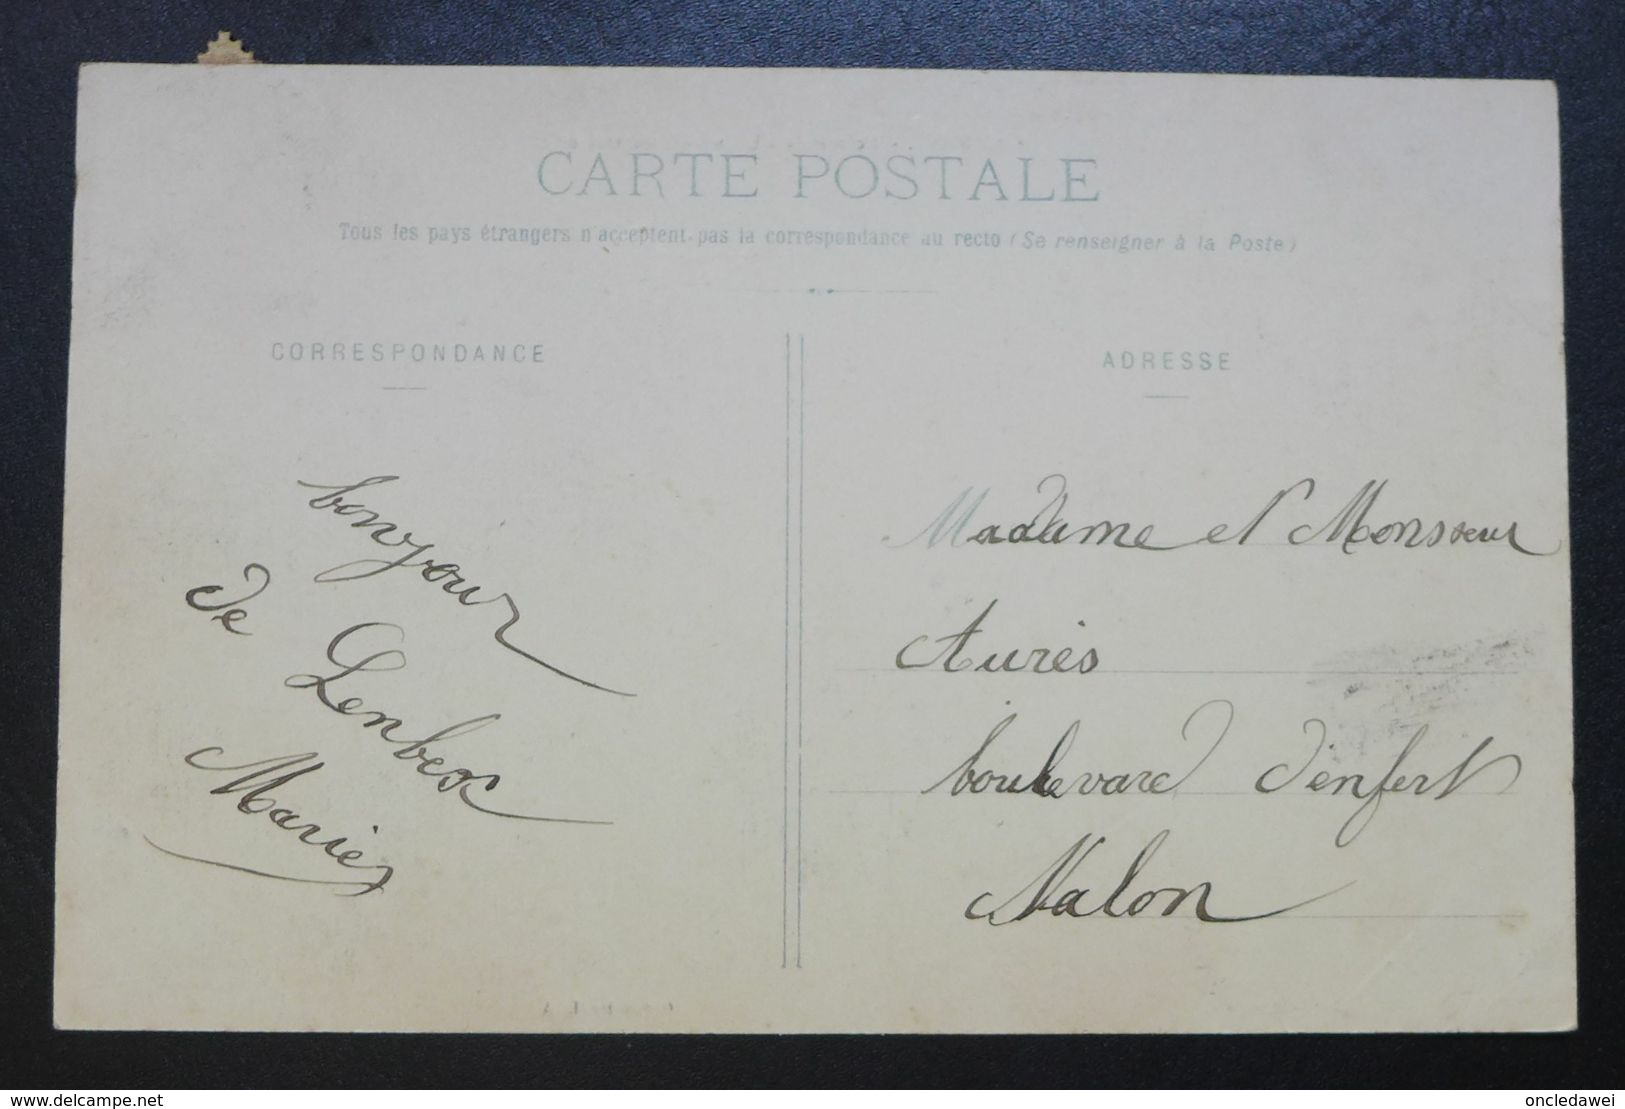 CARTE POSTALE
Tous les pays étrangers n'acceptent pas la correspondance au recto (Se renseigner à la Poste)
CORRESPONDANCE
bonjour
de Lenbex
Marie
ADRESSE
Madame et Monsieur
Aurès
boulevard d'enfert
Nalon
www.delcampe.net
oncledawei